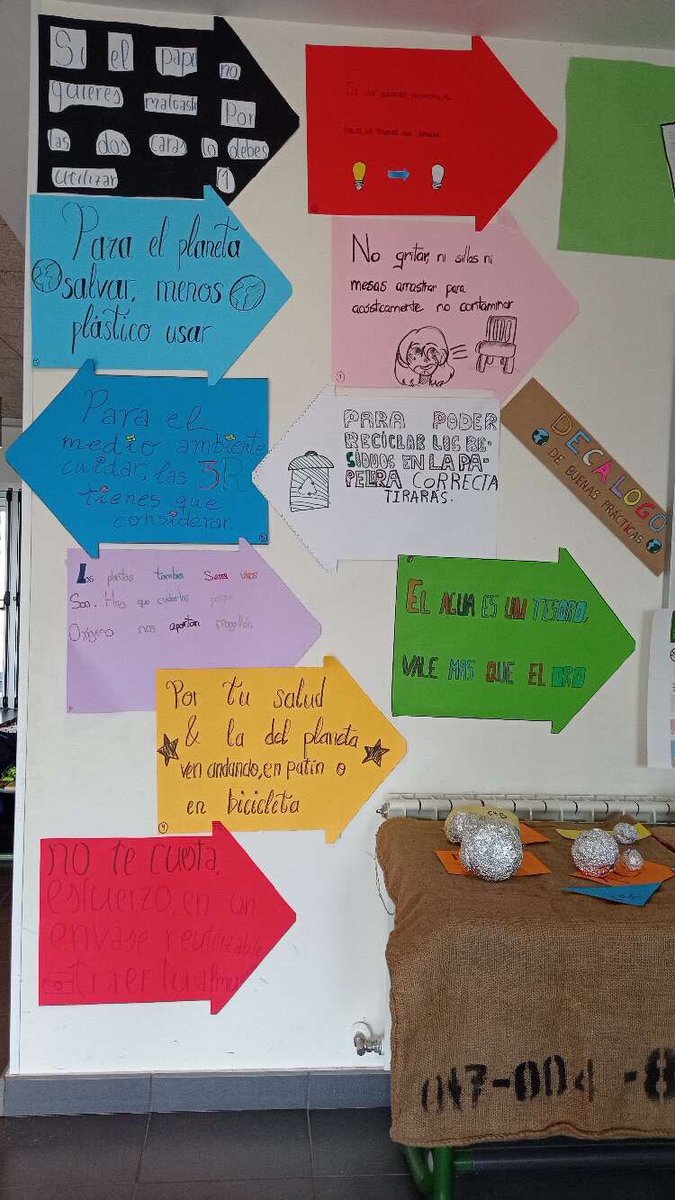 Si el papel no
quieres malgastar Por
las dos caras lo debes
utilizar
Si
Para el planeta
salvar, menos
plástico usar
No gritar, ni sillas ni
mesas arrastrar para
acústicamente no contaminar
Para el
medio ambiente
cuidar, las 3R
tienes que
considerar.
PARA PODER
RECICLAR LOS RE-
SIDUOS EN LA PA-
PELERA CORRECTA
TIRARAS.
DECALOGO
DE BUENAS PRÁCTICAS
Las plantas también Seres vivos
Son. Hay que cuidarlas porque
Oxígeno nos aportan mogollón
EL AGUA ES UN TESORO,
VALE MAS QUE EL ORO
Por tu salud
& la del planeta
ven andando, en patín o
en bicicleta
no te cuesta,
esfuerzo, en un
envase reutilizable
traer tu
047-004-8